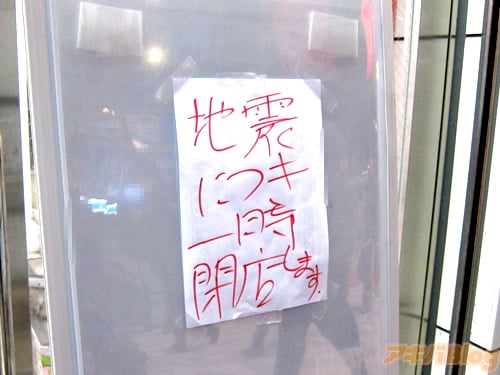 地震
につき
一時
閉店します.
アキバBlog